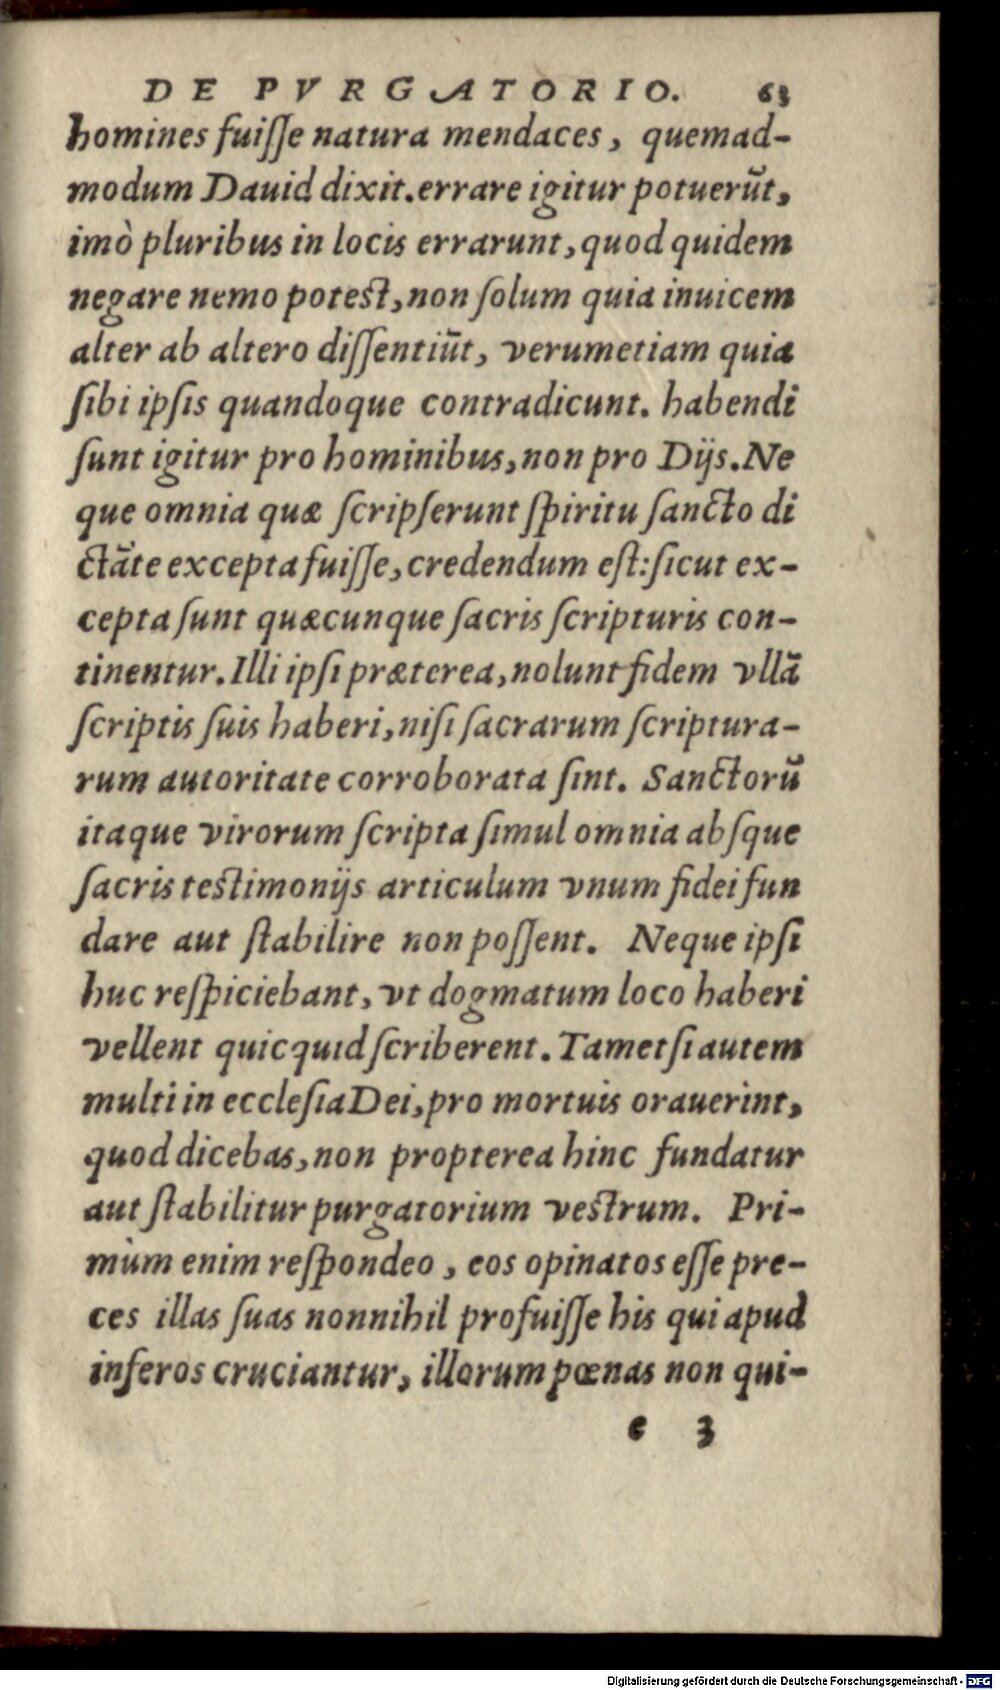 DE PVRGATORIO. 63
homines fuiſſe natura mendaces, quemad-
modum Dauid dixit. errare igitur potuerũt,
imò pluribus in locis errarunt, quod quidem
negare nemo potest, non ſolum quia inuicem
alter ab altero diſſentiũt, verumetiam quia
ſibi ipſis quandoque contradicunt. habendi
ſunt igitur pro hominibus, non pro Dijs. Ne
que omnia quæ ſcripſerunt ſpiritu ſancto di
ctãte excepta fuiſſe, credendum eſt: ſicut ex-
cepta ſunt quæcunque ſacris ſcripturis con-
tinentur. Illi ipſi præterea, nolunt fidem vllã
ſcriptis ſuis haberi, niſi ſacrarum ſcriptura-
rum autoritate corroborata ſint. Sanctorũ
itaque virorum ſcripta ſimul omnia abſque
ſacris testimonijs articulum vnum fidei fun
dare aut ſtabilire non poſſent. Neque ipſi
huc reſpiciebant, vt dogmatum loco haberi
vellent quicquid ſcriberent. Tametſi autem
multi in eccleſia Dei, pro mortuis orauerint,
quod dicebas, non propterea hinc fundatur
aut ſtabilitur purgatorium vestrum. Pri-
mùm enim reſpondeo, eos opinatos eſſe pre-
ces illas ſuas nonnihil profuiſſe his qui apud
inferos cruciantur, illorum pœnas non qui-
e 3
Digitalisierung gefördert durch die Deutsche Forschungsgemeinschaft - DFG